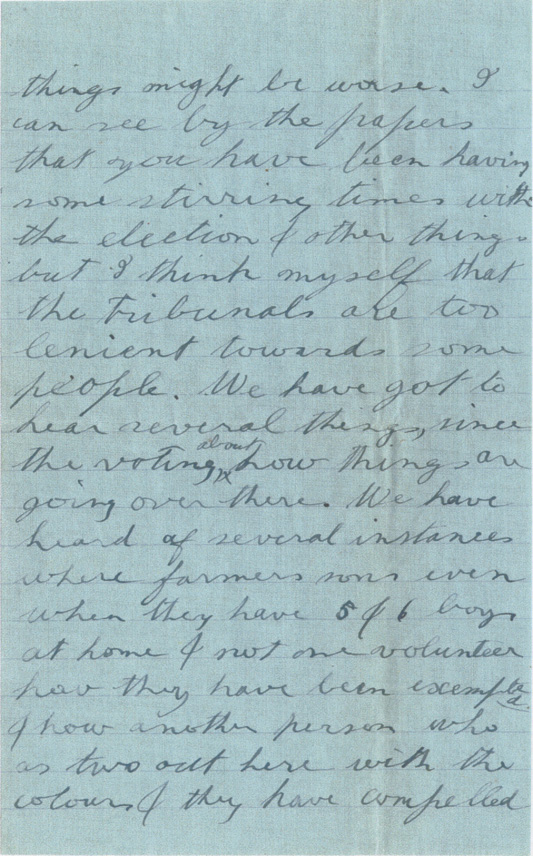 things might be worse. I
can see by the papers
that you have been having
some stirring times with
the election & other things
but I think myself that
the Tribunals are two
lenient towards some
people. We have got to
hear several things, since
about
the voting, how things are
going over there. We have
heard of several instances
where farmers sons even
when they have 5 & 6 boys
at home & not one volunteer
how they have been exempted.
& how another person who
as two out here with the
colours & they have compelled